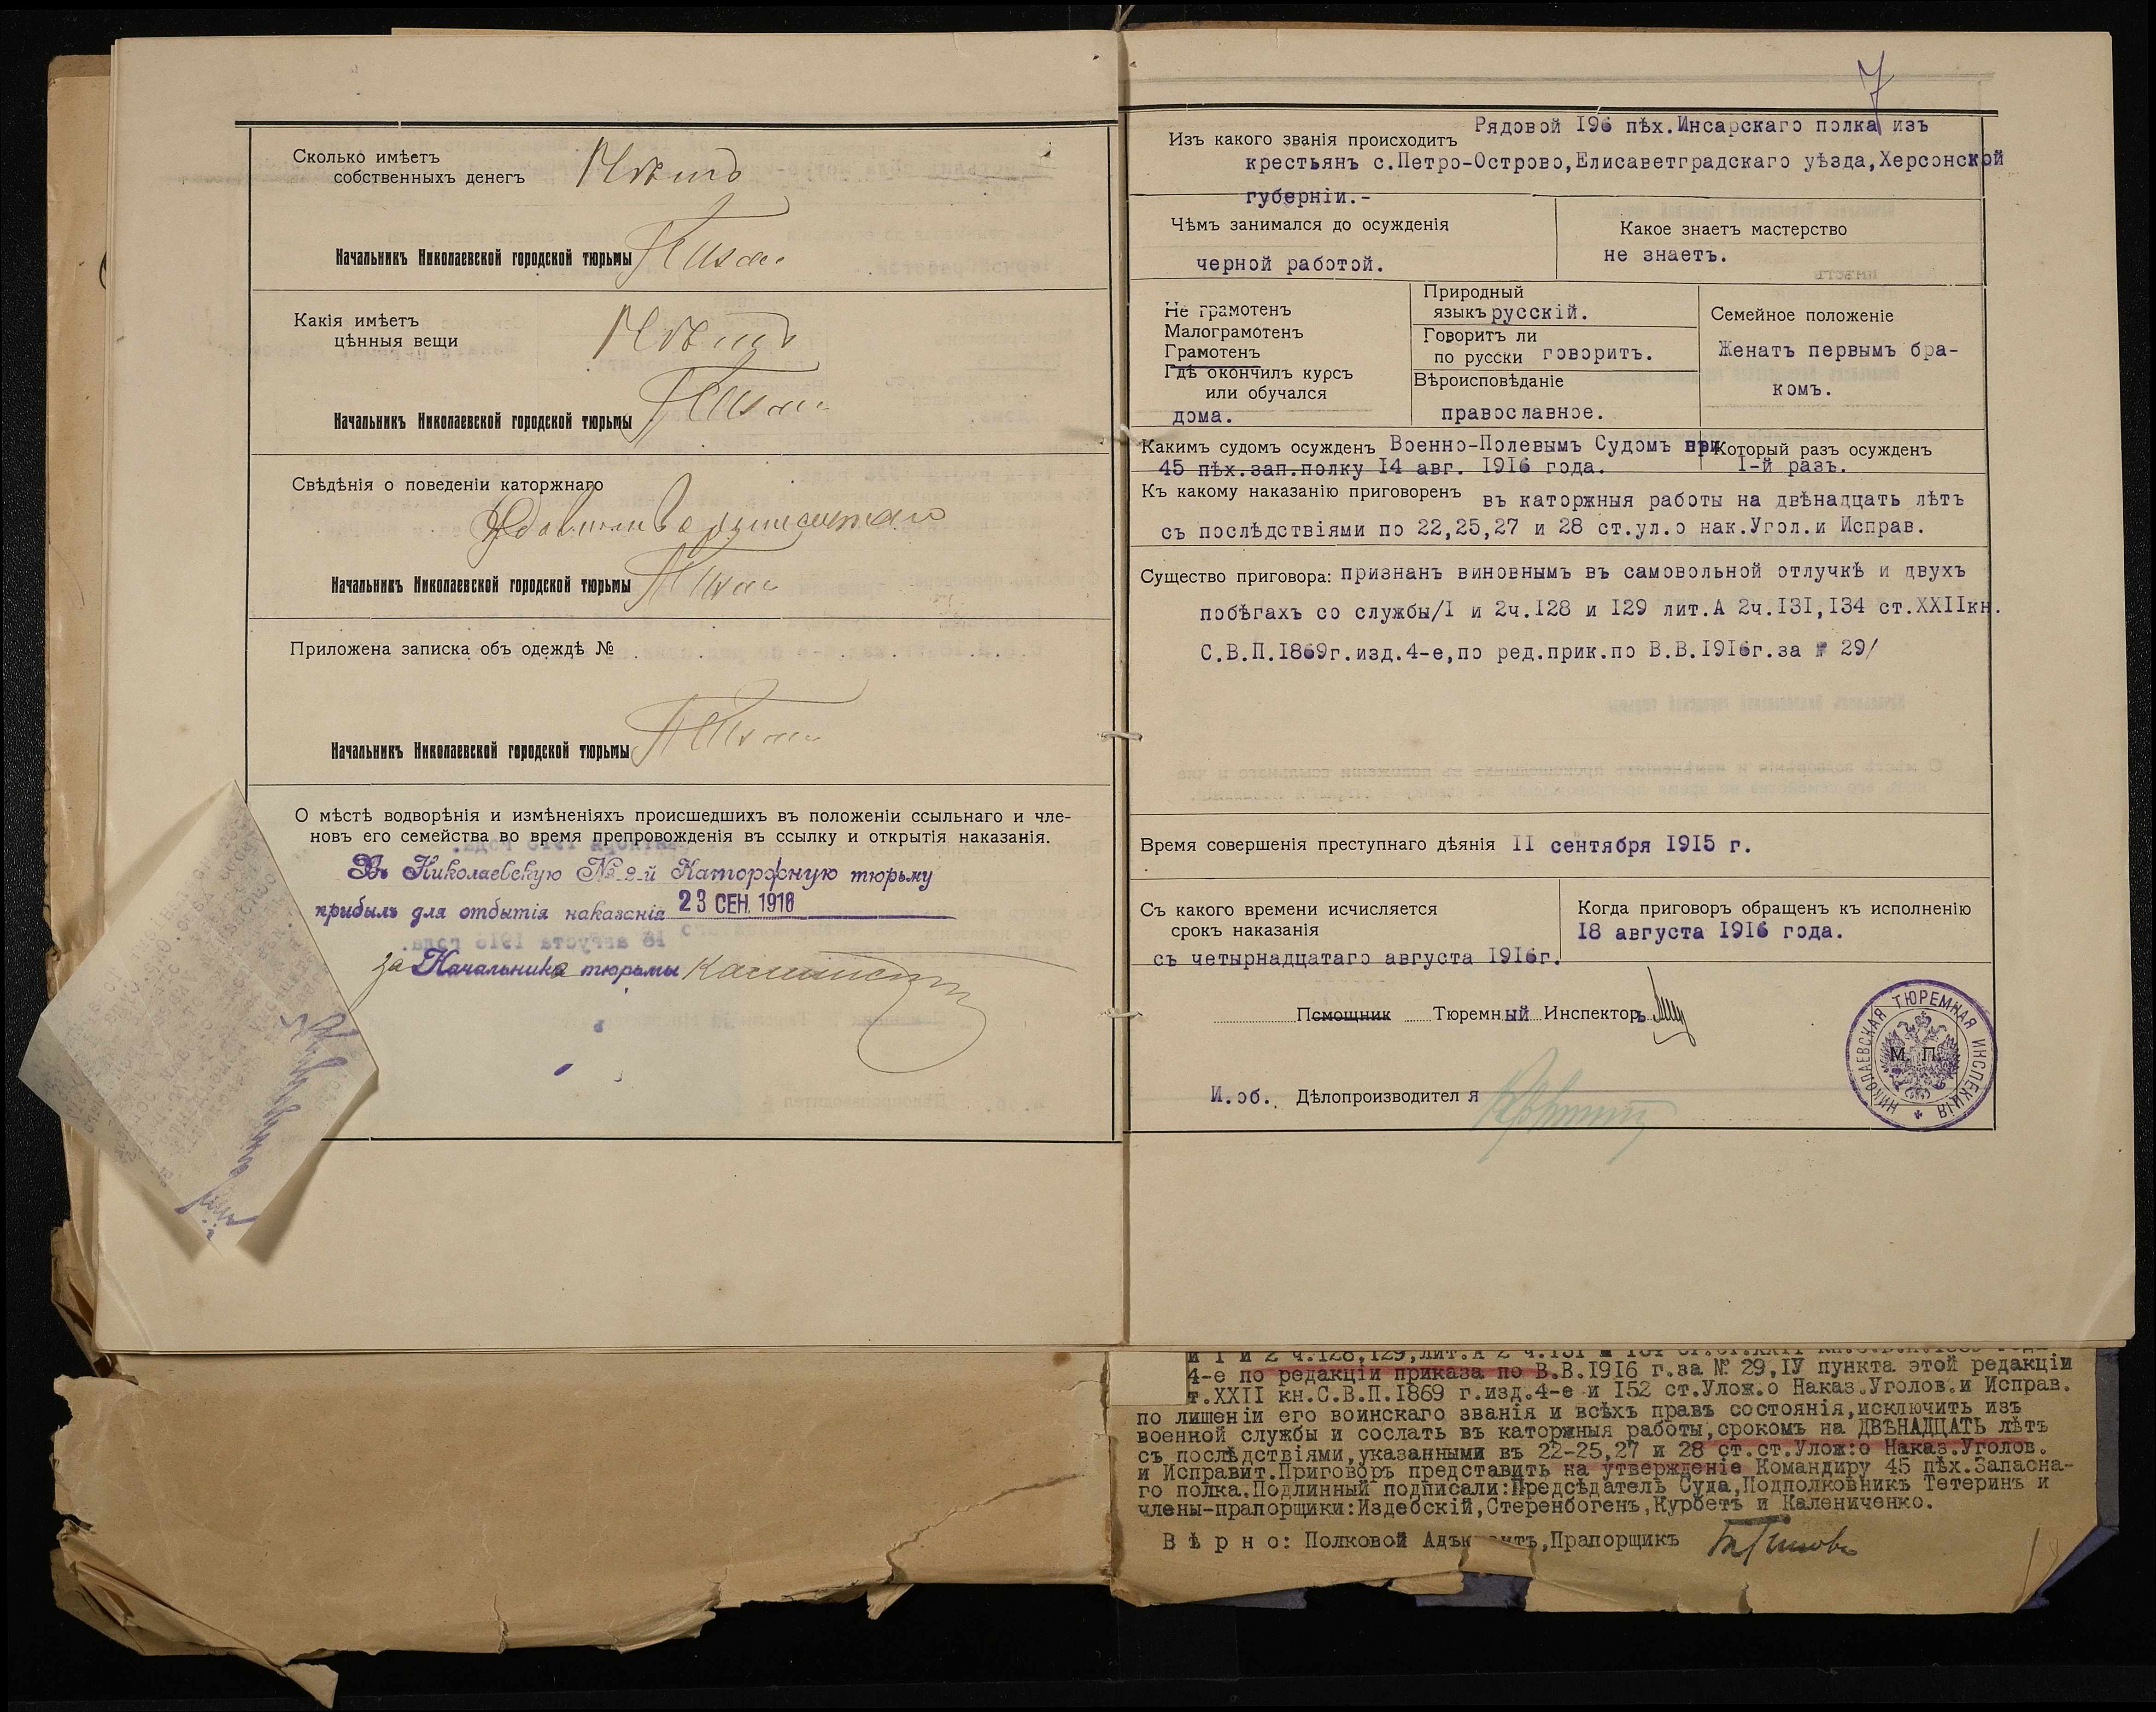 Сколько имѣетъ
собственныхъ денегъ
Нѣтъ
Начальникъ Николаевской городской тюрьмы
Какія имѣетъ
цѣнныя вещи
Нѣтъ
Начальникъ Николаевской городской тюрьмы
Свѣдѣнія о поведеніи каторжнаго
Начальникъ Николаевской городской тюрьмы
Приложена записка объ одеждѣ №
Начальникъ Николаевской городской тюрьмы
О мѣстѣ водворѣнія и измѣненіяхъ происшедшихъ въ положеніи ссыльнаго и чле-
новъ его семейства во время препровожденія въ ссылку и открытія наказанія.
Въ Николаевскую № 2-й Каторжную тюрьму
прибылъ для отбытія наказанія 23 СЕН. 1916
за Начальника тюрьмы
7
Изъ какого званія происходитъ Рядовой 196 пѣх.Инсарскаго полка изъ
крестьянъ с.Петро-Острово,Елисаветградскаго уѣзда,Херсонской
губерніи.-
Чѣмъ занимался до осужденія
черной работой.
Какое знаетъ мастерство
не знаетъ.
Не грамотенъ
Малограмотенъ
Грамотенъ
Гдѣ окончилъ курсъ
или обучался
дома.
Природный
языкъ русскій.
Говоритъ ли
по русски говоритъ.
Вѣроисповѣданіе
православное.
Семейное положеніе
Женатъ первымъ бра-
комъ.
Какимъ судомъ осужденъ Военно-Полевымъ Судомъ при
45 пѣх.зап.полку 14 авг. 1916 года.
Который разъ осужденъ
I-й разъ.
Къ какому наказанію приговоренъ въ каторжныя работы на двѣнадцать лѣтъ
съ послѣдствіями по 22,25,27 и 28 ст.ул.о нак.Угол.и Исправ.
Существо приговора: признанъ виновнымъ въ самовольной отлучкѣ и двухъ
побѣгахъ со службы/I и 2ч.I28 и I29 лит.А 2ч.I3I,I34 ст.XXIIкн.
С.В.П.I869г.изд.4-е,по ред.прик.по В.В.I9I6г.за № 29/
Время совершенія преступнаго дѣянія II сентября 1915 г.
Съ какого времени исчисляется
срокъ наказанія
съ четырнадцатаго августа I9I6г.
Когда приговоръ обращенъ къ исполненію
I8 августа I9I6 года.
Помощникъ Тюремный Инспекторъ
НИКОЛАЕВСКАЯ ТЮРЕМНАЯ ИНСПЕКЦІЯ
М. П.
И.об. Дѣлопроизводителя
4-е по редакціи приказа по В.В.I9I6 г.за № 29,IУ пункта этой редакціи
т.XXII кн.С.В.П.I869 г.изд.4-е и I52 ст.Улож.о Наказ.Уголов.и Исправ.
по лишеніи его воинскаго званія и всѣхъ правъ состоянія,исключить изъ
военной службы и сослать въ каторжныя работы,срокомъ на ДВѢНАДЦАТЬ лѣтъ
съ послѣдствіями,указанными въ 22-25,27 и 28 ст.ст.Улож:о Наказ.Уголов.
и Исправит.Приговоръ представить на утвержденіе Командиру 45 пѣх.Запасна-
го полка.Подлинный подписали:Предсѣдатель Суда,Подполковникъ Тетеринъ и
члены-прапорщики:Издебскій,Стеренбогенъ,Курбетъ и Калениченко.
В ѣ р н о: Полковой Адъютантъ,Прапорщикъ